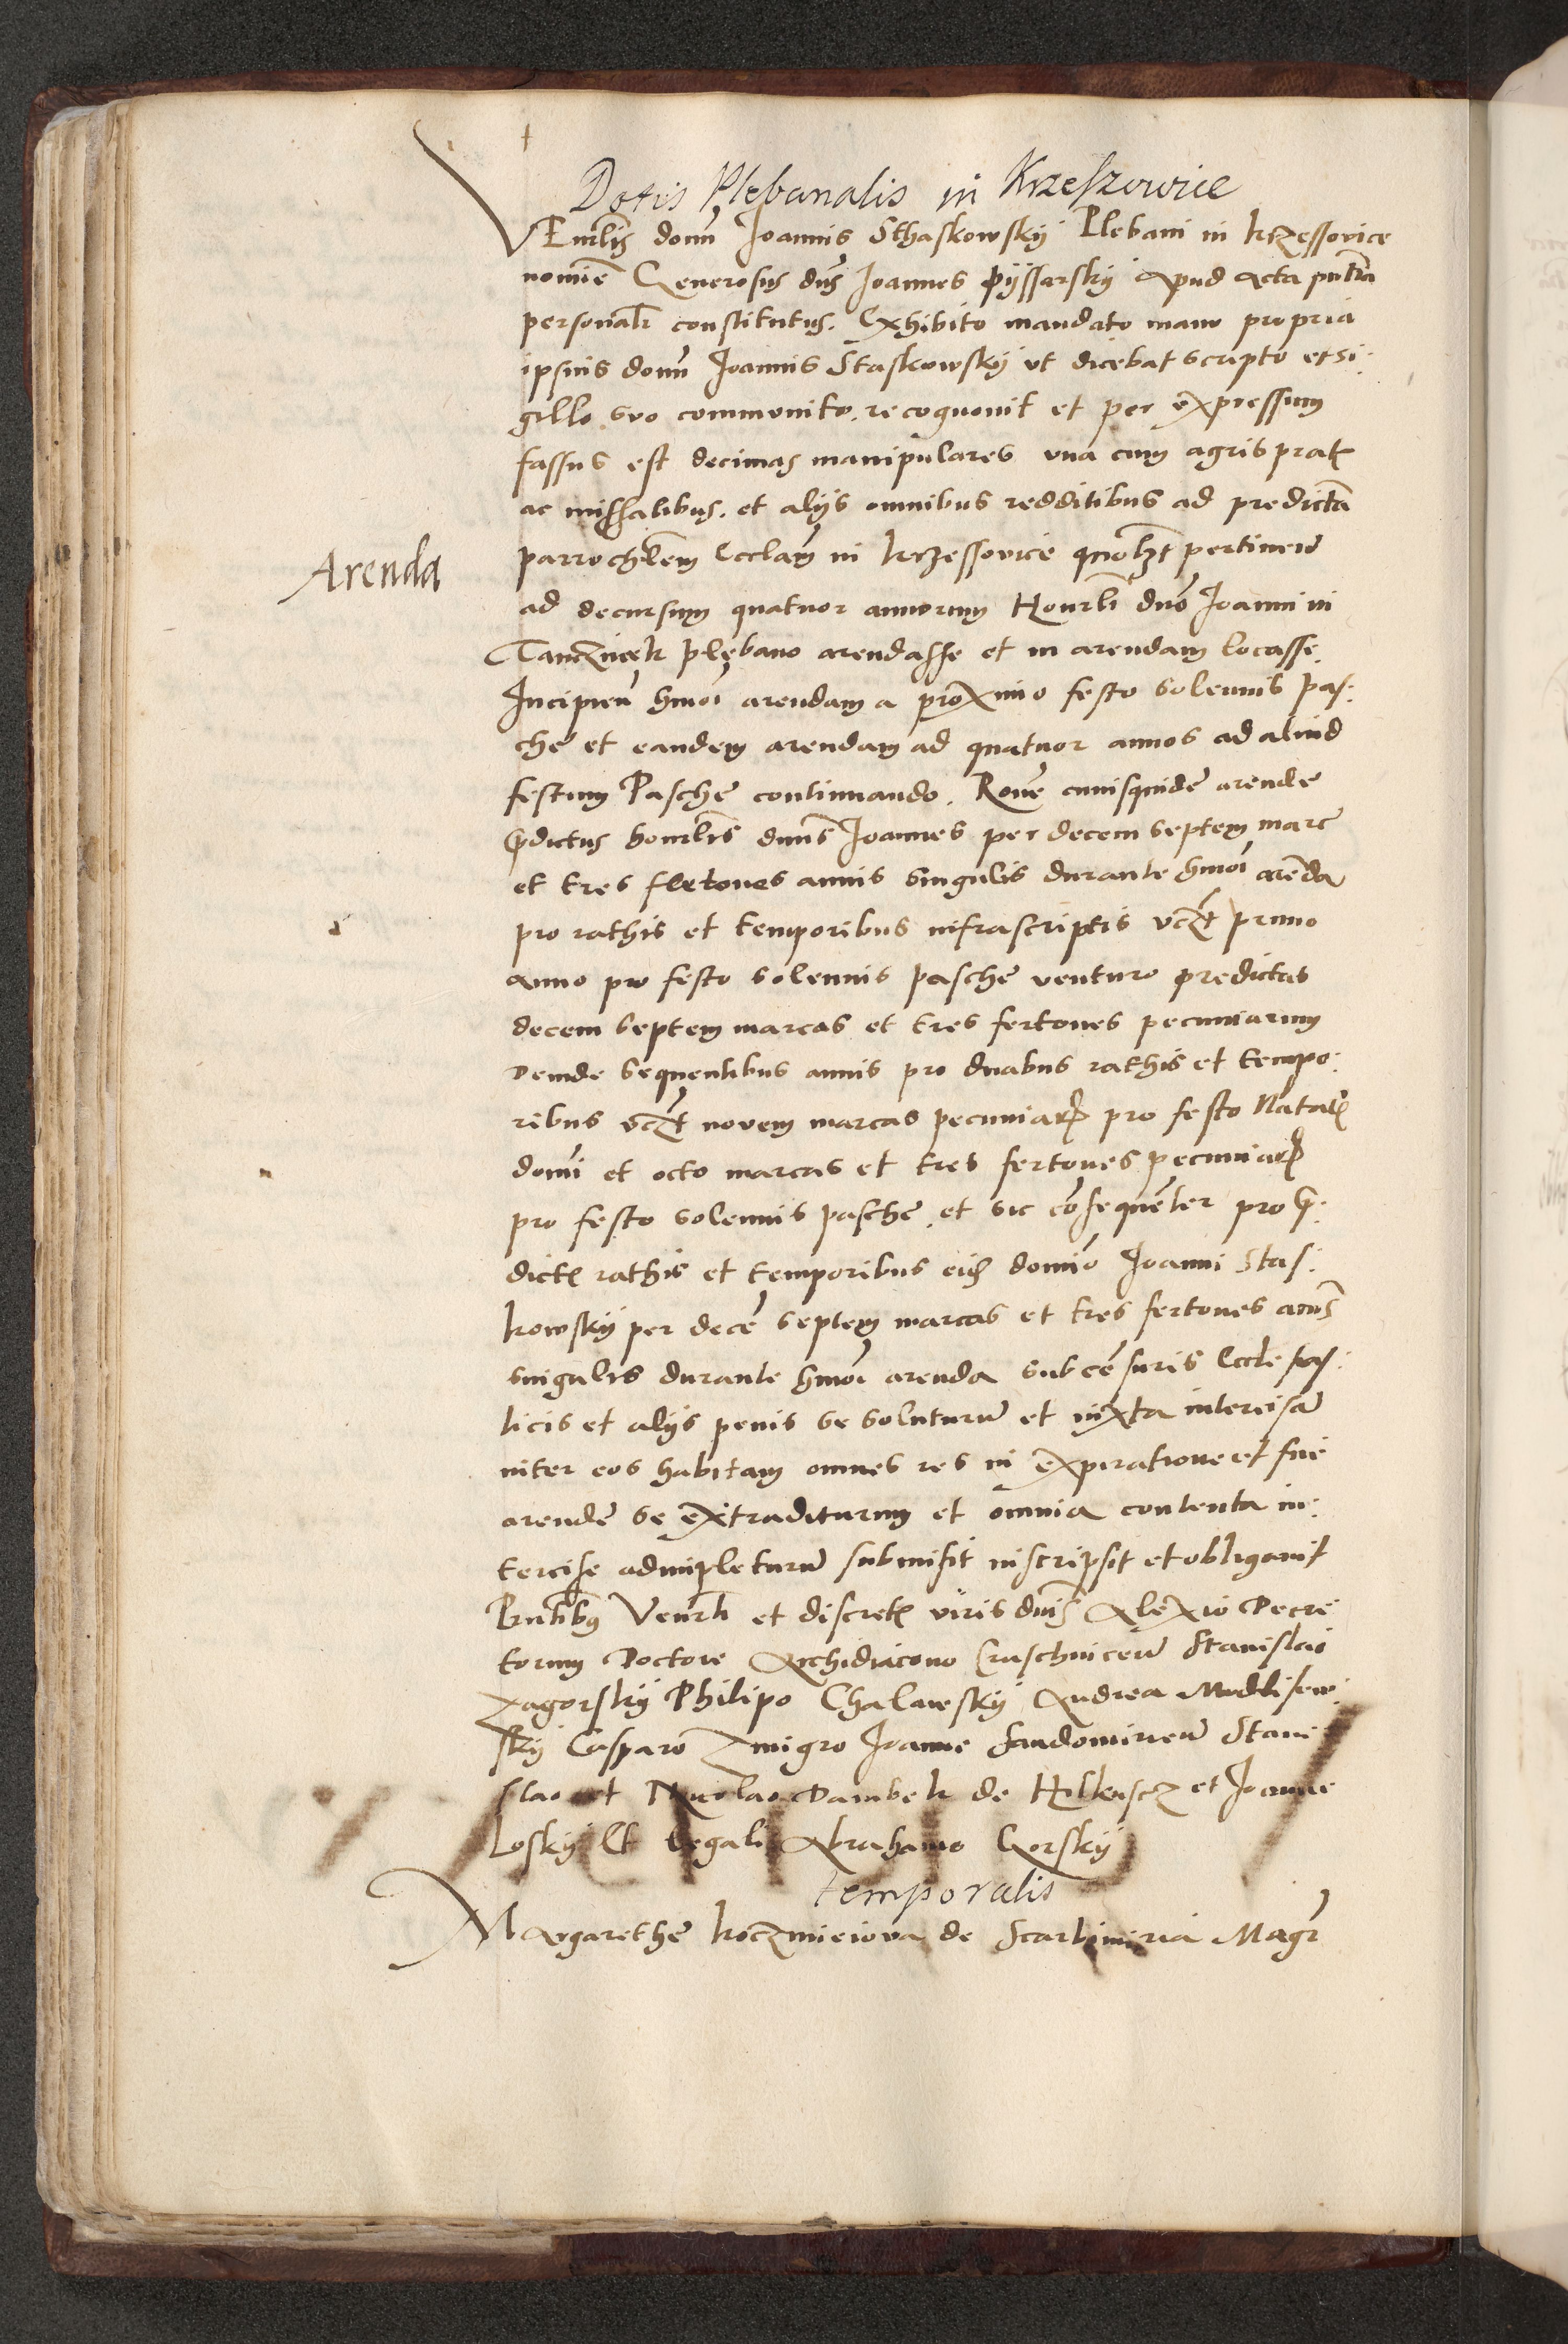 Dotis Plebanalis in Krzeszowice
VEnrlis domi Joannis Sthaskowsky Plebani in krzessovice
nomie Generosus dns Joannes Pyssarsky apud acta pntia
personalr constitutus. Exhibito mandato manu propria
ipsius domi Joannis Staskowsky ut dicebat scripto et si:
gillo suo communito. recognovit et per expressum
fassus est decimas manipulares una cum agris prat
ac missalibus. et alijs omnibus redditibus ad predicta
Arenda
parrochlem Ecclam in krzessovice quolzt pertinen
ad decursum quatuor annorum Honrli dno Joanni in
Tanczinek plebano arendasse et in arendam locasse.
Incipien hmoi arendam a proximo festo solennis pas:
che et eandem arendam ad quatuor annos ad aliud
festum Pasche continuando. Rone cuiusquide arende
pdictus honrlis dnus Joannes per decem septem marc
et tres fertones annis singulis durante hmoi arenda
pro rathis et temporibus infrascriptis vczt primo
anno pro festo solennis pasche venturo predictas
decem septem marcas et tres fertones pecuniarum
Deinde sequentibus annis pro duabus rathis et tempo:
ribus vczt novem marcas pecuniar pro festo Natal
domi et octo marcas et tres fertones pecuniar
pro festo solennis pasche. et sic consequenter pro p:
dict rathis et temporibus eid domino Joanni Stas:
kowsky per dece septem marcas et tres fertones annis
singulis durante hmoi arenda sub censuris Eccle sias:
ticis et alijs penis se soluturu et iuxta intercisa
inter eos habitam omnes res in expiratione et fine
arende se extraditurum et omnia contenta in:
tercise adimpleturu submisit inscripsit et obligavit
Pntibus Venrli et discret viris dnis Alexio Decre
torum Doctore Archidiacono Cruschvicen Stanislao
Zagorsky Philipo Chalawsky Andrea
sky Casparo Zmigro Joanne Sandomirien Stani
slao et Nicolao Dambek de et Joanne
Losky Et legali Abrahamo Gorsky
temporalis
Margarethe koczmierova de Scarbimiria Magr